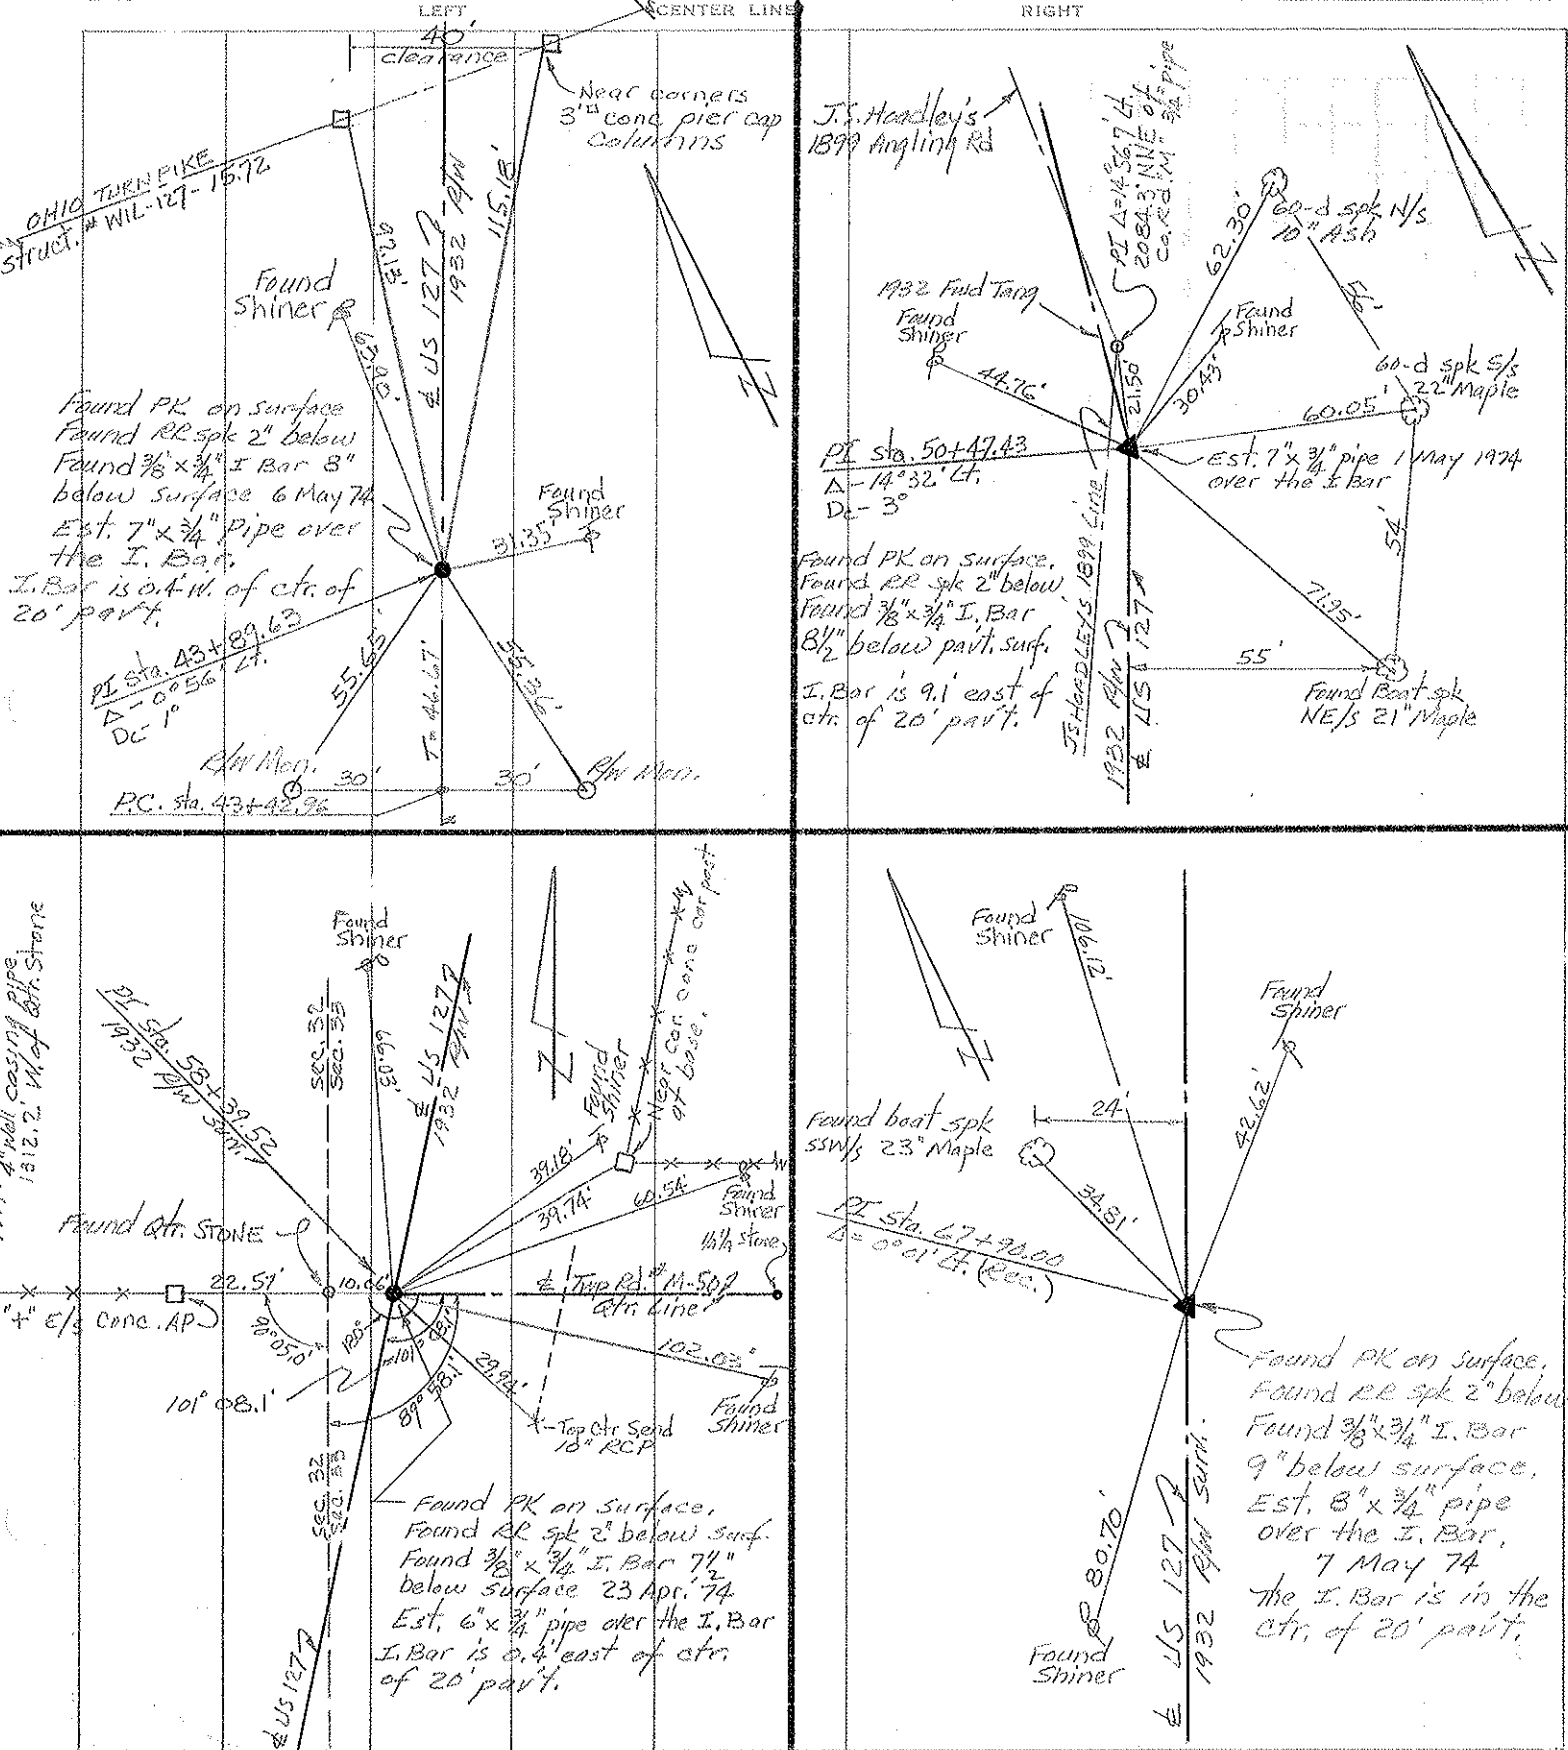 LEFT
CENTER LINE
RIGHT
40'
clearance
Near corners
3'□ conc pier cap
Columns
OHIO TURNPIKE
Struct. # WIL-127-15.72
92.13'
℄ US 127
1932 R/W
115.18'
Found
Shiner
Found PK on surface
Found RR spk 2" below
Found 3/8 x 3/4" I Bar 8"
below surface 6 May 74
Est. 7" x 3/4" Pipe over
the I. Bar.
I. Bar is 0.4' W. of ctr. of
20' pav't.
Found
Shiner
31.35'
PI sta. 43+89.63
Δ - 0°56' Lt.
Dc - 1°
55.36'
T = 46.67'
R/W Mon.
30'
30'
R/W Mon.
P.C. sta. 43+42.96
N
J.S. Hoadley's
1899 Angling Rd
PI Δ=14°56.7' Lt.
2084.3' NNE of
Co. Rd. "M" 3/4" pipe
60-d spk N/s
10" Ash
62.30'
56'
1932 Fwd Tang
Found
Shiner
Found
Shiner
44.76'
21.50'
30.43'
60-d spk S/s
22" Maple
60.05'
PI sta. 50+47.43
Δ - 14°32' Lt.
Dc - 3°
Est. 7" x 3/4" pipe 1 May 1974
over the I Bar
54'
Found PK on surface.
Found RR spk 2" below
Found 3/8" x 3/4" I. Bar
8 1/2" below pav't. surf.
I. Bar is 9.1' east of
ctr. of 20' pav't.
JS HOADLEYS 1899 Line
1932 R/W
℄ US 127
71.95'
55'
Found Boat spk
NE/s 21" Maple
N
4" Well casing pipe
1312.2' W. of Qtr. Stone
Found
Shiner
PI Sta. 58+39.52
1932 R/W Surv.
Sec. 32
Sec. 33
℄ US 127
1932 R/W
N
Found
Shiner
Near Cor. conc cor post
at base.
39.18'
39.74'
60.54'
Found
Shiner
Found Qtr. STONE
22.57'
10.06'
℄ Twp Rd. # M-50
Qtr. Line
"+" E/s Conc. AP
90°05.0'
120°
101°08.1'
101°08.1'
89°58.1'
29.94'
102.03'
Found
Shiner
Top Ctr S. end
10" RCP
Sec. 32
Sec. 33
Found PK on surface.
Found RR spk 2" below surf.
Found 3/8" x 3/4" I. Bar 7 1/2"
below surface 23 Apr. '74
Est. 6" x 3/4" pipe over the I. Bar
I. Bar is 0.4' east of ctr.
of 20' pav't.
℄ US 127
Found
Shiner
Found
Shiner
Found boat spk
SSW/s 23" Maple
24'
42.62'
34.81'
PI Sta. 67+90.00
Δ = 0°01' Lt. (Rec.)
N
Found PK on surface.
Found RR spk 2" below
Found 3/8" x 3/4" I. Bar
9" below surface.
Est. 8" x 3/4" pipe
over the I. Bar.
7 May 74
The I. Bar is in the
ctr. of 20' pav't.
80.70'
Found
Shiner
℄ US 127
1932 R/W Surv.